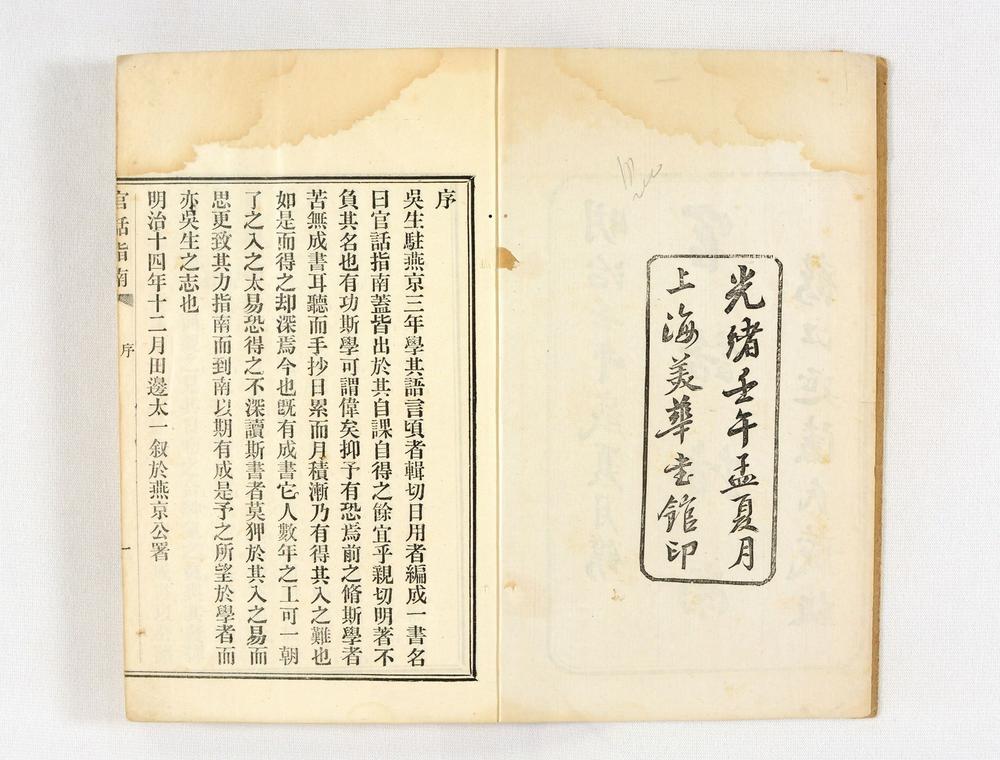 光緒壬午孟夏月
上海美華書館印
序
吳生駐燕京三年學其語言頃者輯切日用者編成一書名
曰官話指南蓋皆出於其自課自得之餘宜乎親切明著不
負其名也有功斯學可謂偉矣抑予有恐焉前之脩斯學者
苦無成書耳聽而手抄日累而月積漸乃有得其入之難也
如是而得之却深焉今也既有成書它人數年之工可一朝
了之入之太易恐得之不深讀斯書者莫狎於其入之易而
思更致其力指南而到南以期有成是予之所望於學者而
亦吳生之志也
明治十四年十二月田邊太一叙於燕京公署
官話指南
序
一